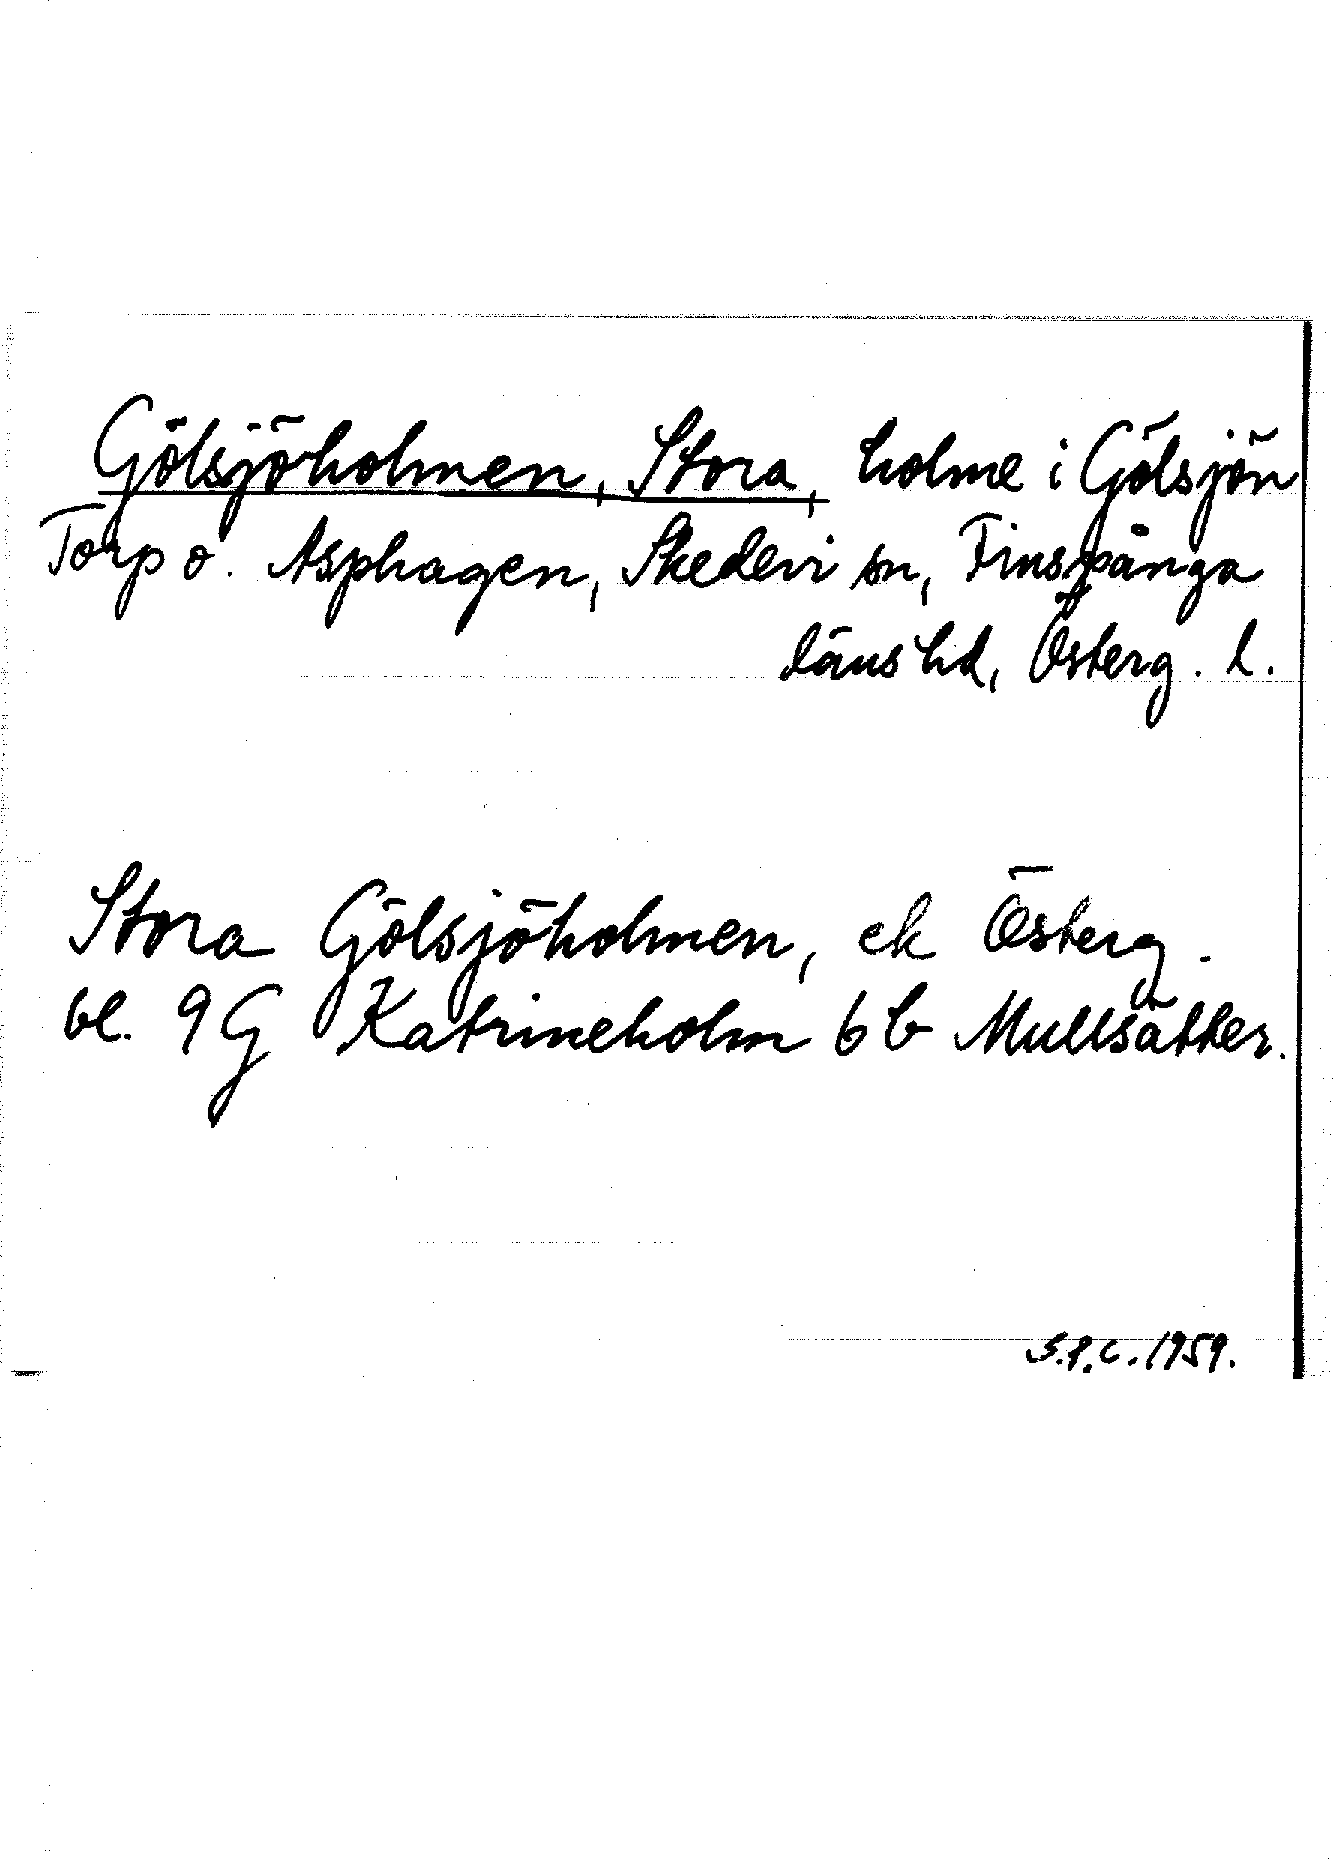 Gölsjöholmen, Stora, holme i Gölsjön
Torp o. Asphagen, Skedevi sn, Finspånga
läns hd, Österg. l.
Stora Gölsjöholmen, ek Österg.
bl. 9G Katrineholm 6b Mullsätter.
S.P.C. 1959.